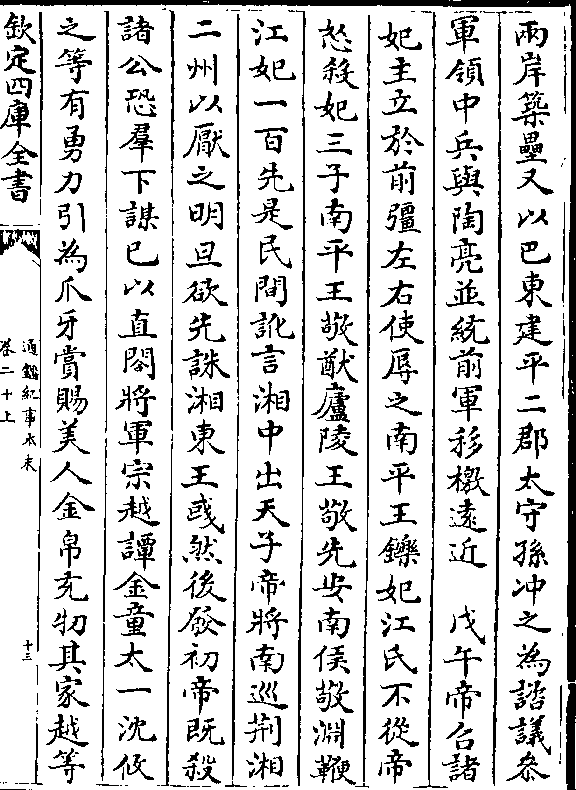 兩岸築壘又以巴東建平二郡太守孫冲之為諮議叅
軍領中兵與陶亮並統前軍移檄逺近　戊午帝召諸
妃主立於前彊左右使辱之南平王鑠妃江氏不從帝
怒殺妃三子南平王敬猷廬陵王敬先安南侯敬淵鞭
江妃一百先是民間訛言湘中出天子帝將南巡荆湘
二州以厭之明旦欲先誅湘東王彧然後發初帝既殺
諸公恐羣下謀己以直閤將軍宗越譚金童太一沈攸
之等有勇力引為爪牙賞賜美人金帛充牣其家越等
欽定四庫全書
通鑑紀事本末
卷二十上
十三